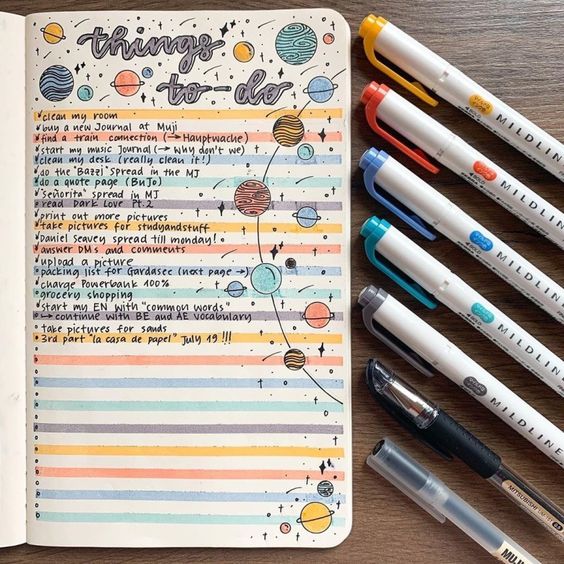 things
to-do
clean my room
buy a new Journal at Muji
find a train connection (→ Hauptwache)
start my music Journal (→ Why don't we)
clean my desk (really clean it!)
do the "Bazzi" spread in the MJ
do a quote page (BuJo)
"señorita" spread in MJ
read Dark Love Pt.2
print out more pictures
take pictures for studyandstuff
Daniel Seavey spread till monday!
answer DMs and comments
upload a picture
packing list for Gardasee (next page →)
charge Powerbank 100%
grocery shopping
start my EN with "common words"
↳ continue with BE and AE vocabulary
take pictures for sands
3rd part "la casa de papel" July 19 !!!
MILDLINER
MILDLINER
MILDLINER
MILDLINER
MILDLINER
MITSUBISHI
MUJI